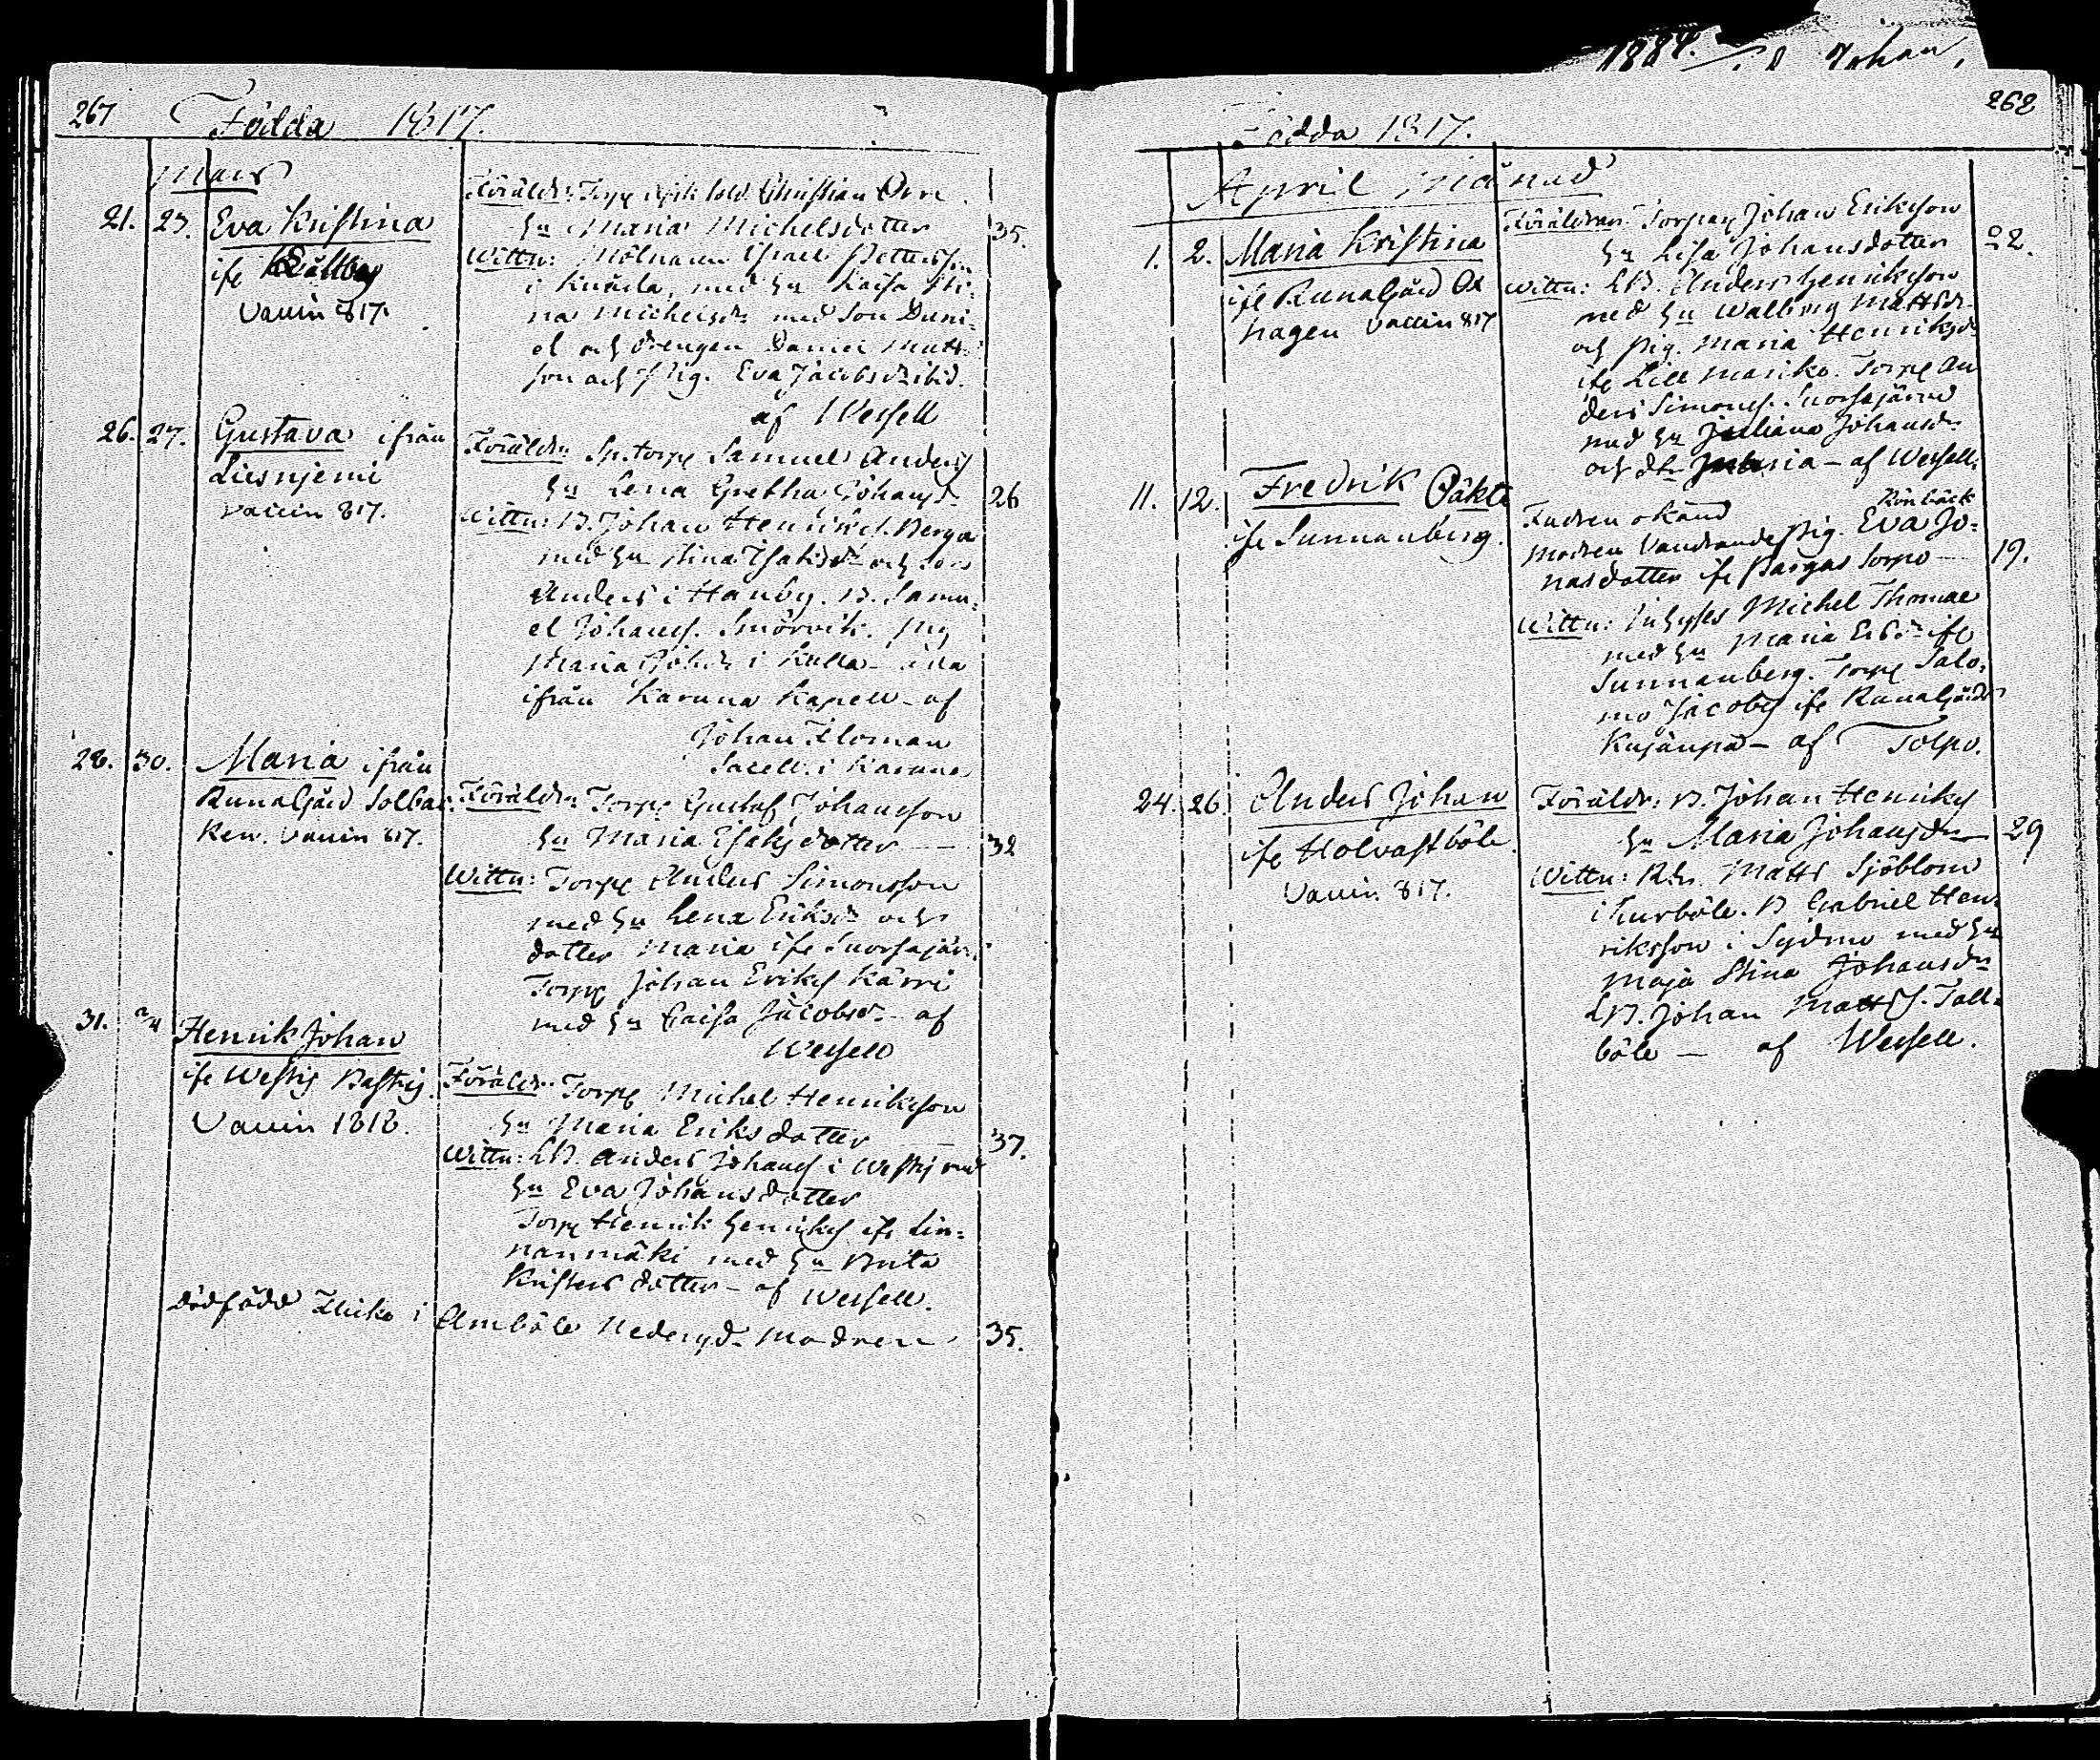 1884. Johan,
267 Födda 1817.
Mars
21. 23. Eva Kristina
ife Källbag
Vaccin 817.
Föräldr: Torp Christian Orre
hu Maria Michelsdotter 35.
Wittn: Mölnaren Israel Pettersson
i Kuåila, med hu Kaisa Sti-
na Michelsdr med Son Dani-
el och drengen Daniel Matts-
son och Pig. Eva Jacobsdr ibid.
af Wessell
26. 27. Gustava ifrån
Liesnjemi
vaccin 817.
Föräldr: Sp.torp Samuel Anders
hu Lena Gretha Johansd 26
Wittn: B. Johan Henriks. Berga
med hu Stina Isaksdr och son
Anders i Hanby. B. Samu-
el Johans. Smörvik. Pig
Maria Johdr i Kulla - alla
ifrån Karuna Kapell - af
Johan Floman
Sacell. i Karuna
28. 30. Maria ifrån
Runaljård Solbac-
ken. Vaccin 817.
Föräldr: Torp Gustaf Johansson
hu Maria Isaksdotter — 32
Wittn: Torp Anders Simonsson
med hu Lena Eriksdr och
dotter Maria ife Suorsajärvi
Torp Johan Eriks Kärri
med hu Caisa Jacobsdr - af
Wessell
31. 2/4 Henrik Johan
ife Westij Bastij.
Vaccin 1818.
Föräldr: Torp Michel Henriksson
hu Maria Eriksdotter — 37.
Wittn: LB. Anders Johans i Westij med
hu Eva Johansdotter
Torp Henrik Henriks ife Lin-
nanmäki med hu Brita
Kristersdotter - af Wessell.
Dödfödd Flicka i Ambåle Nedergd. Modren 35.
262
Födda 1817.
April Månad
1. 2. Maria Kristina
ife Runaljård Ox
hagen Vaccin 817
Föräldrar: Torpar Johan Eriksson
hu Lisa Johansdotter 22.
Wittn: LB. Anders Henriksson
med hu Walborg Mattsdr
och Pig. Maria Henriksdr
ife Lill Masiko. Torp An
ders Simons. Suorsajärvi
med hu Juliana Johansdr
och dtr Maria - af Wessell.
11. 12. Fredrik Oäkta
ife Sunnanberg.
Fadren okänd
Rönbäck
Modren Vandrande Pig. Eva Jo-
nasdotter ife Pargas Sorpo — 19.
Wittn: Inhyses Michel Thomae
med hu Maria Ersdr ife
Sunnanberg. Torp Salo-
mo Jacobs ife Runaljård
Kujanpä - af Tolpo.
24. 26. Anders Johan
ife Holvastböle.
Vaccin. 817.
Föräldr: B. Johan Henriks
hu Maria Johansdr — 29
Wittn: Rhr. Matts Sjöblom
i Kurböle. B Gabriel Hen-
riksson i Sydmo med hu
Maja Stina Johansdr
LB. Johan Matts. Tall-
böle — af Wessell.